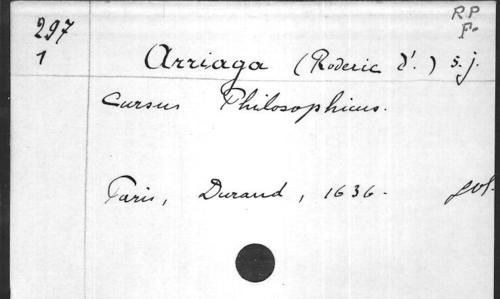 RP
F.
297
1
Arriaga (Roderic d'.) s.j.
Cursus Philosophicus.
Paris, Durand, 1636. fol.